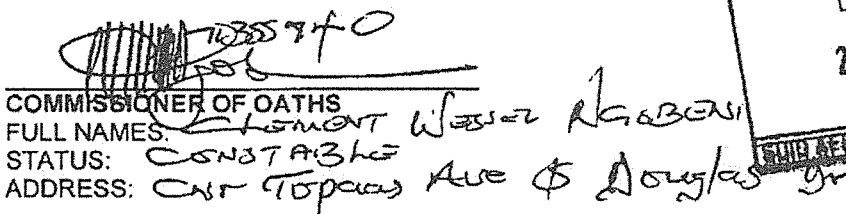 COMMISSIONER OF OATHS
FULL NAMES: CLEMENT WESSEL NGOBENI
STATUS: CONSTABLE
ADDRESS: Cnr Topaas Ave & Douglas